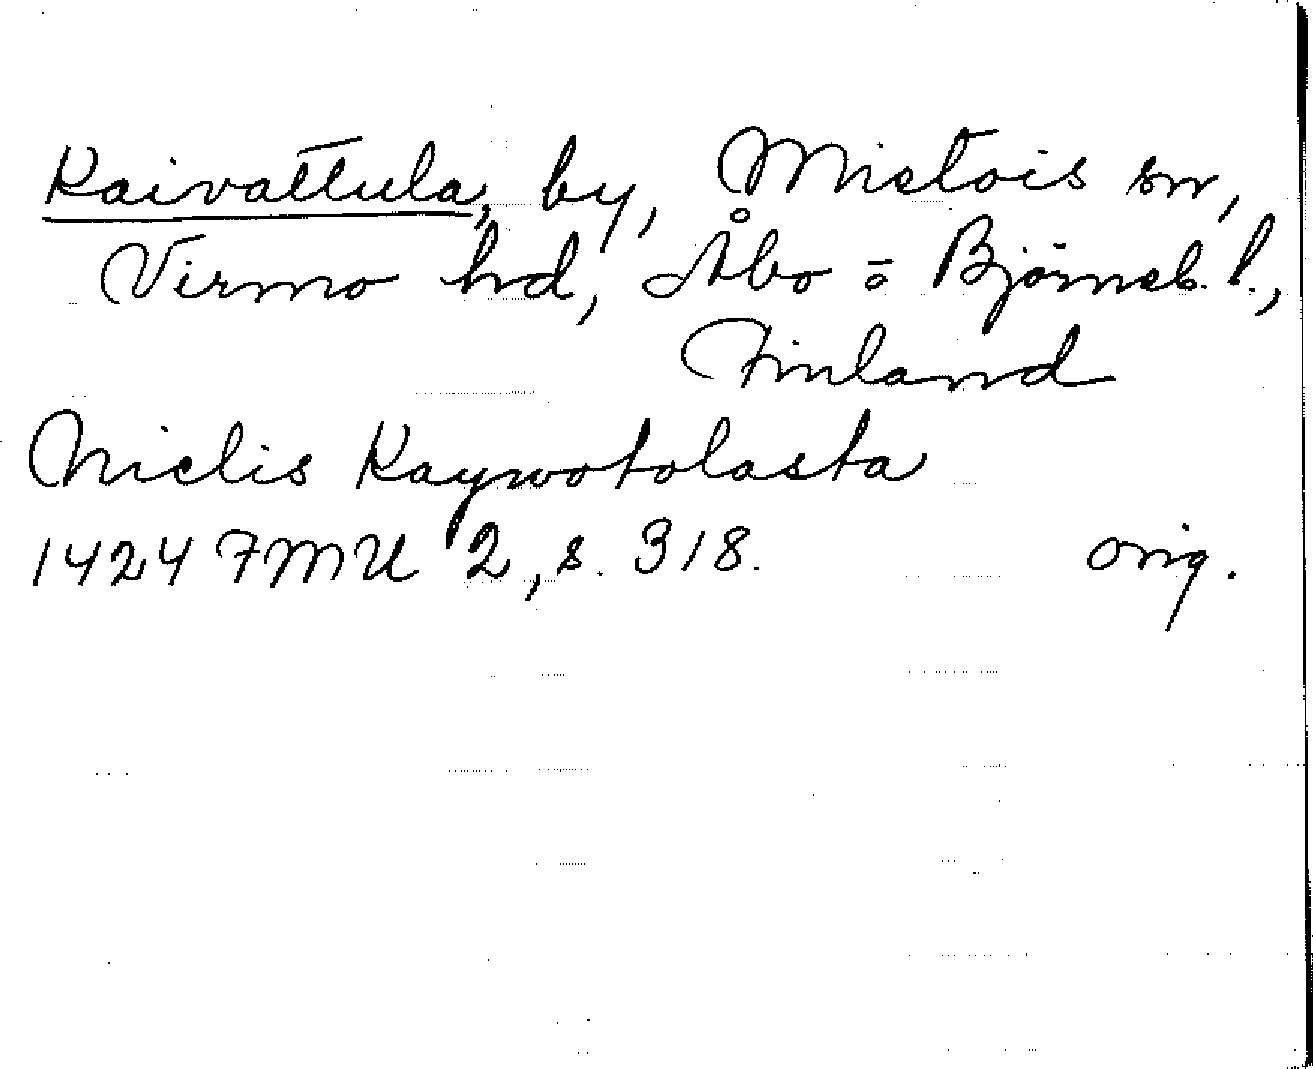 Kaivattula, by, Mietois sn,
Virmo hd, Åbo o Björneb. l.,
Finland
Nielis Kaywotolasta
1424 FMU 2, s. 318. orig.